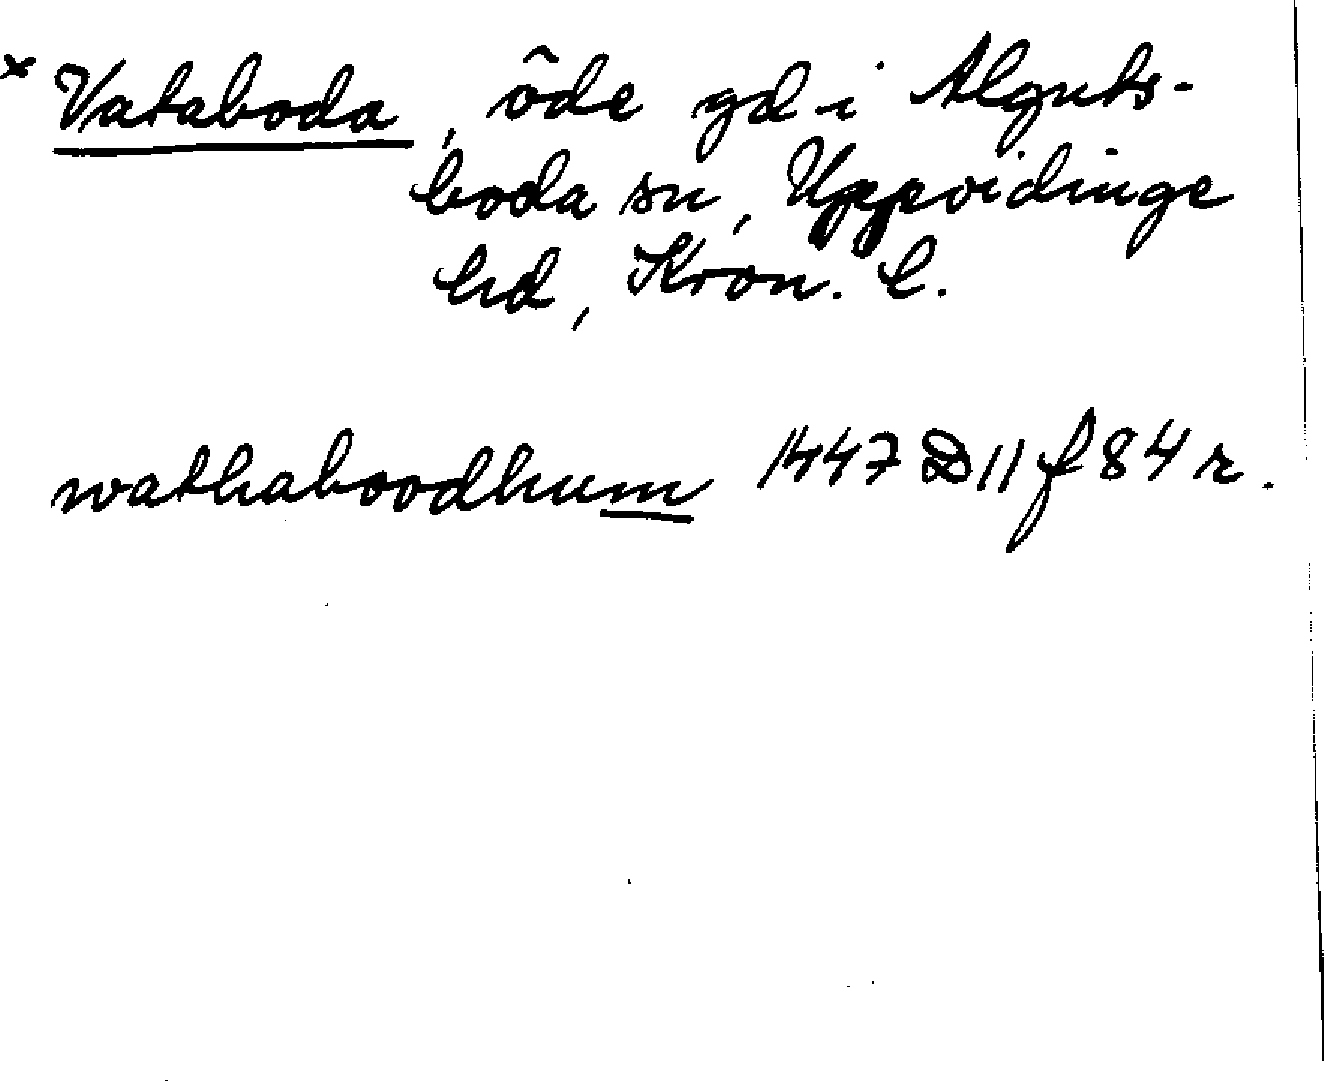 × Vataboda, öde gd i Alguts-
boda sn, Uppvidinge
hd, Kron. l.
wathaboodhum 1447 D11 f 84 r.